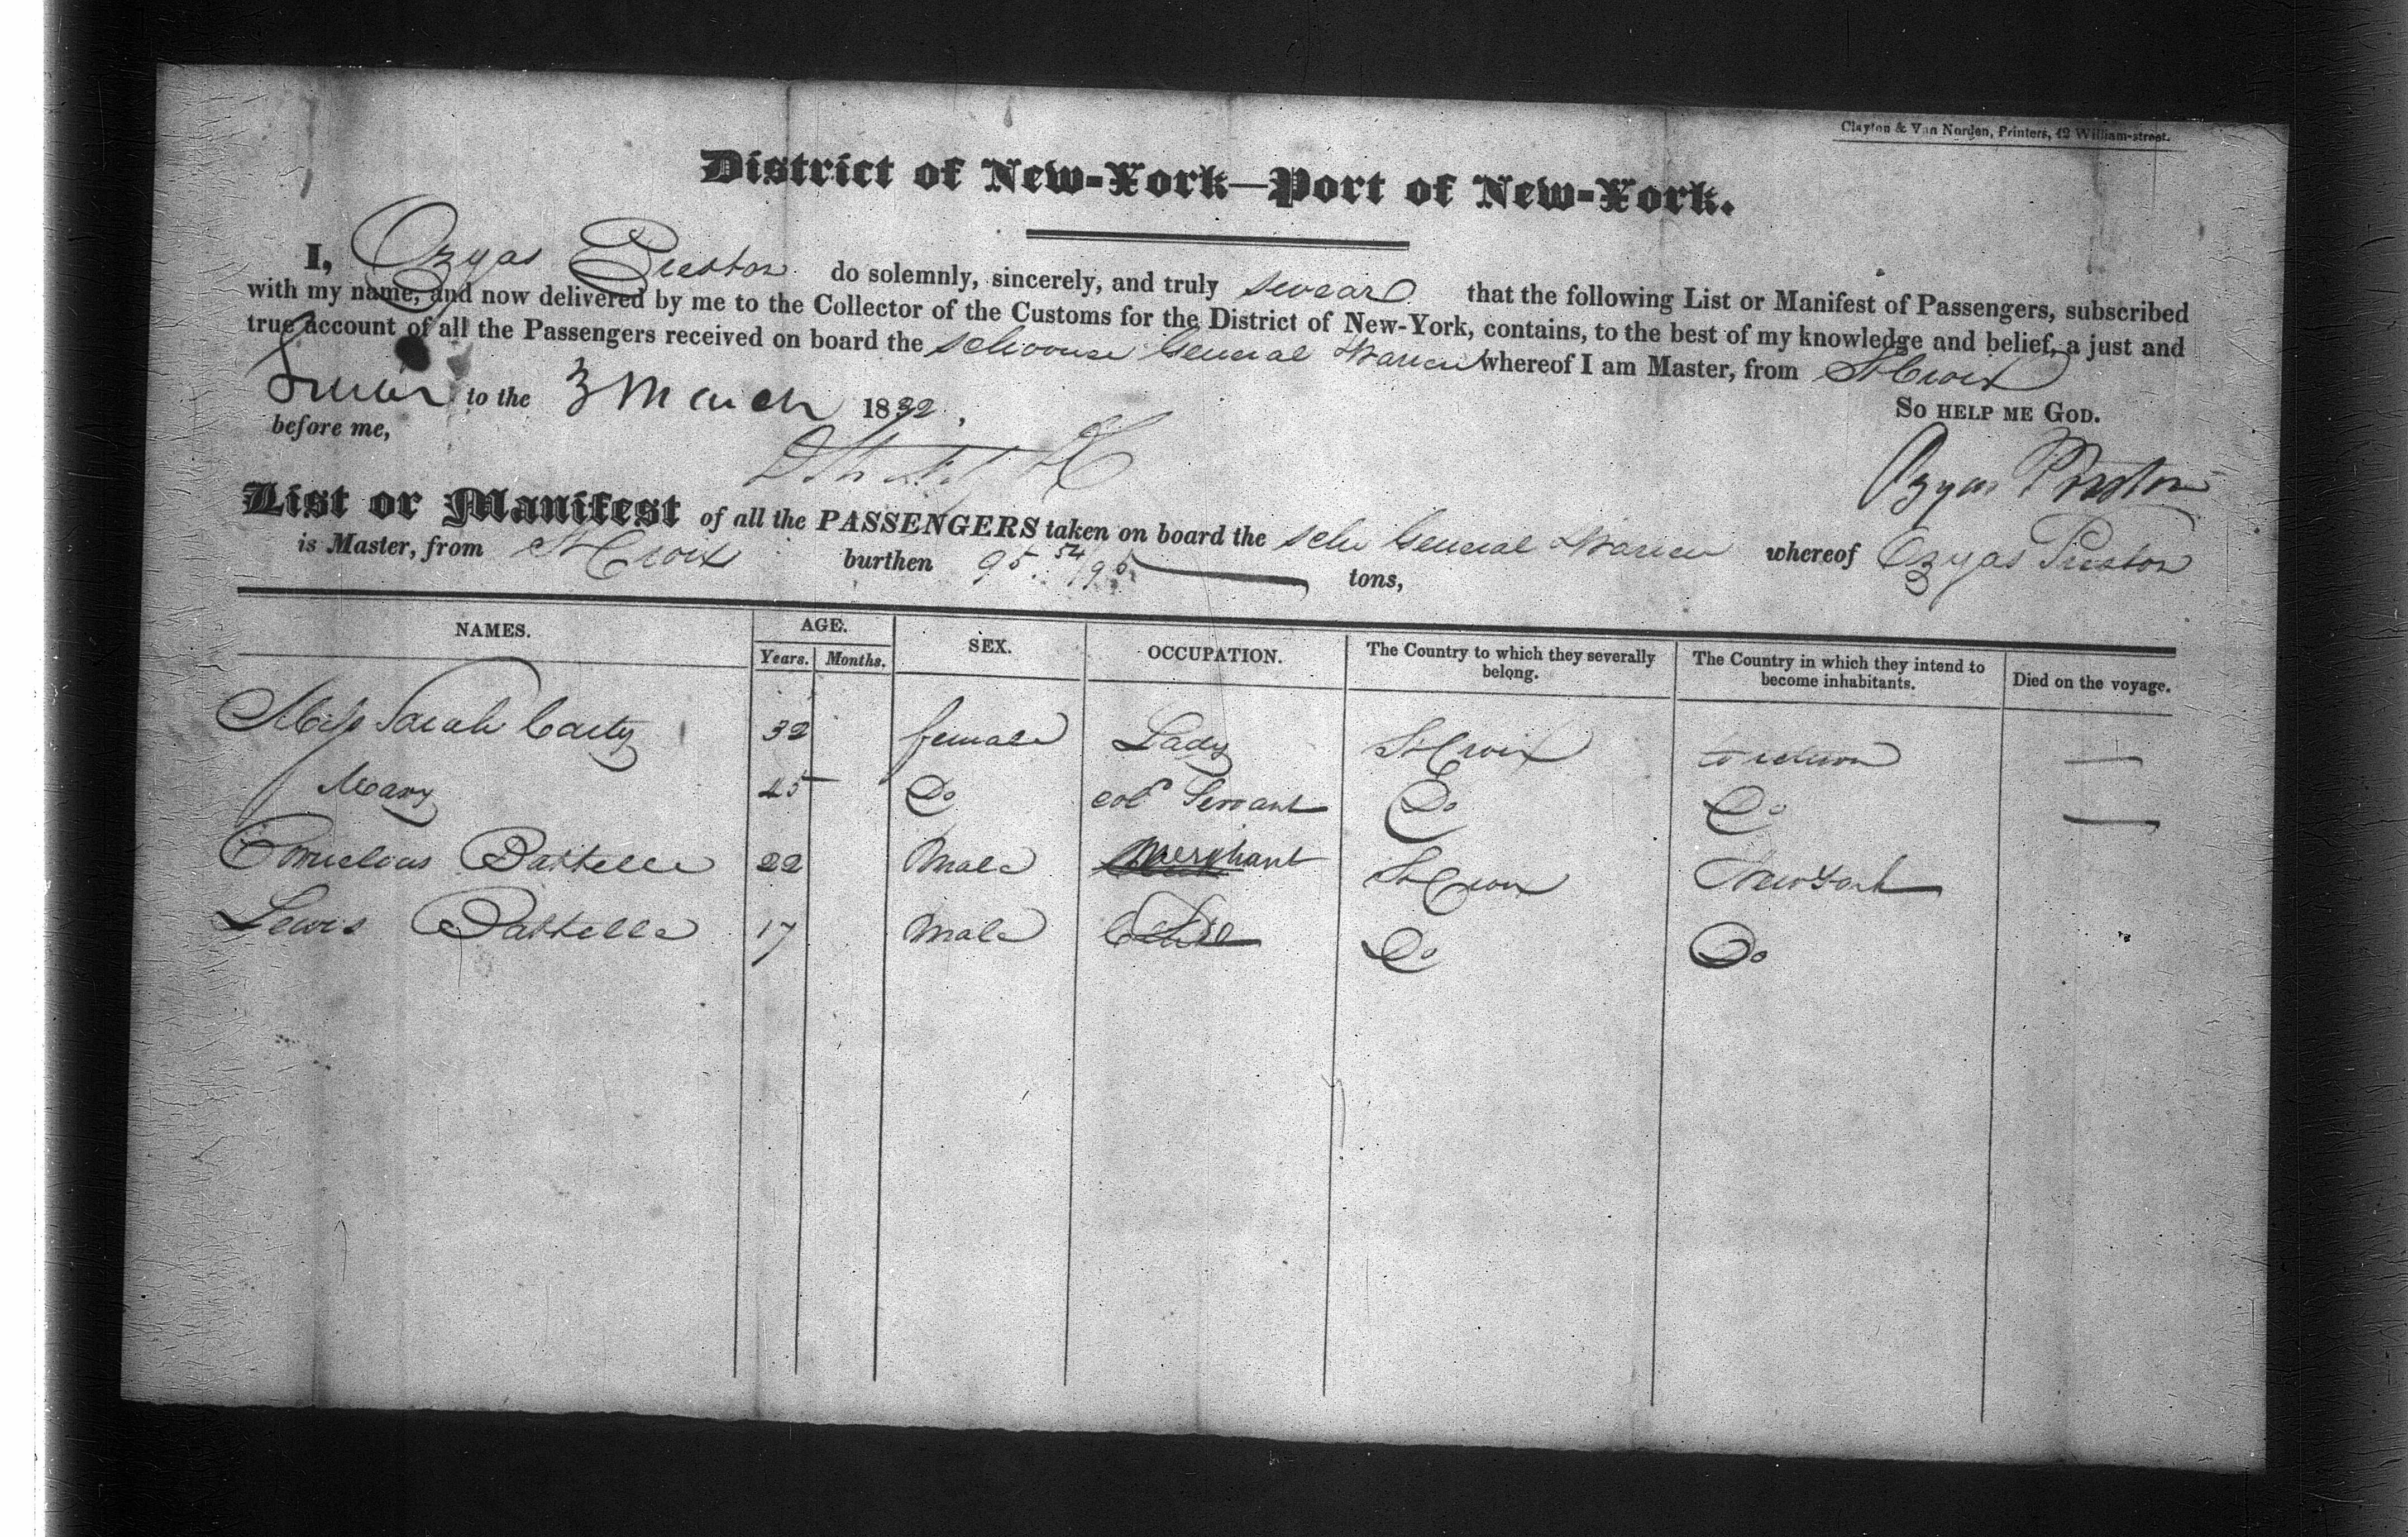 Clayton & Van Norden, Printers, 42 William-street.
District of New-York—Port of New-York.
I, Ozyas Preston do solemnly, sincerely, and truly swear that the following List or Manifest of Passengers, subscribed
with my name, and now delivered by me to the Collector of the Customs for the District of New-York, contains, to the best of my knowledge and belief, a just and
true account of all the Passengers received on board the Schooner General Warren whereof I am Master, from St Croix
Sworn to the 3 March 1832.
So help me God.
before me,
Ozyas Preston
List or Manifest of all the PASSENGERS taken on board the Schr General Warren whereof Ozyas Preston
is Master, from St Croix burthen 95 54/95 tons,
NAMES. AGE. Years. Months. SEX. OCCUPATION. The Country to which they severally belong. The Country in which they intend to become inhabitants. Died on the voyage.
Miss Sarah Carty 32 female Lady St Croix to return —
Mary 45 Do cold Servant Do Do —
Cornelious Battelle 22 Male Merchant St Croix New York
Lewis Battelle 17 Male Do Do Do